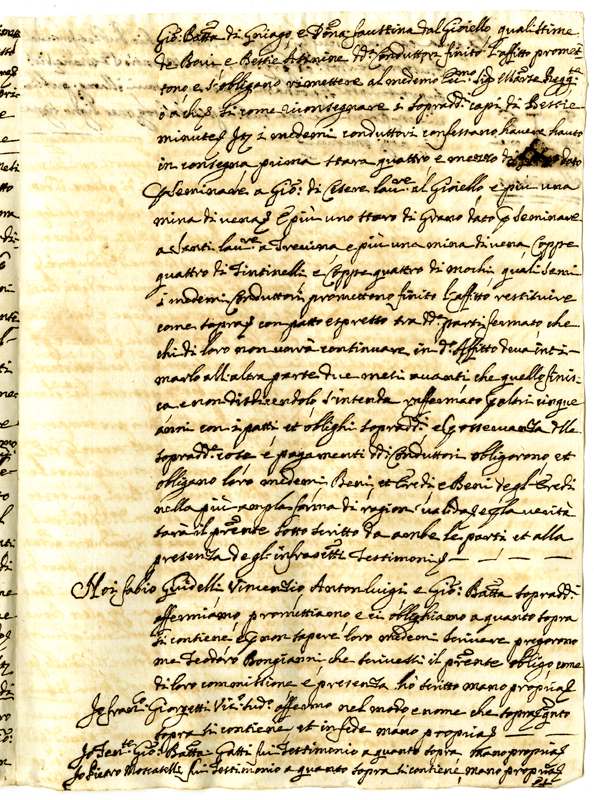 Gio: Batta di Goriago, e Dona faustina dal Gioiello qualittime
de Bovi e Bestie dd: Conduttori finito l'affitto promet-
tono e s'obligano rimettere al medemo
ò a chi si come riconsegnare i sopradd: capi di Bestie
minute i medemi conduttori confessano havere hauto
in consegna prima stara quattro e mezzo di dato
seminare a Gio: di Cesere al Gioiello e più una
mina di vena E più uno staro di Grano dato seminare
a Santi a Trevina e più una mina di vena Coppe
quattro di e Coppe quattro di mochi quali semi
i medemi Conduttori promettono finito l'affitto restituire
come sopra con patto espretto tra dd: parti fermato che
chi di loro non vorrà continuare in do: Affitto deva inti-
marlo all'altra parte due mesi avanti che quello finis-
ca e non disdicendolo s'intenda raffermato altri cinque
anni con i patti et oblighi sopradd: e osservanza dlle
sopradde: cose e pagamenti dd: Conduttori obligorono et
obligano loro medemi Beni, et Eredi e Beni degl'Eredi
nella più ampla forma di ragion valida e la verità
sarà il pnte sotto scritto da ambe le parti et alla
presenza degl'infrascitti Testimoni
Noi fabio Guidelli Vincenzio Antonluigi e Gio: Batta sopradd:
affermiamo promettiamo e ci oblighiamo a quanto sopra
si contiene e non sapere loro medemi scrivere pregorono
me Teodoro Bongianni che scrivessi il pnte obligo come
di loro commissione e presenza hò scritto mano propria
Giorgetti affermo nel modo e nome che sopra
sopra si contiene, et in fede mano propria
Io Gio: Batta Gatti fui Testimonio a quanto sopra mano propria
Io Pietro Moscatelli fui Testimonio a quanto sopra si contiene mano propria